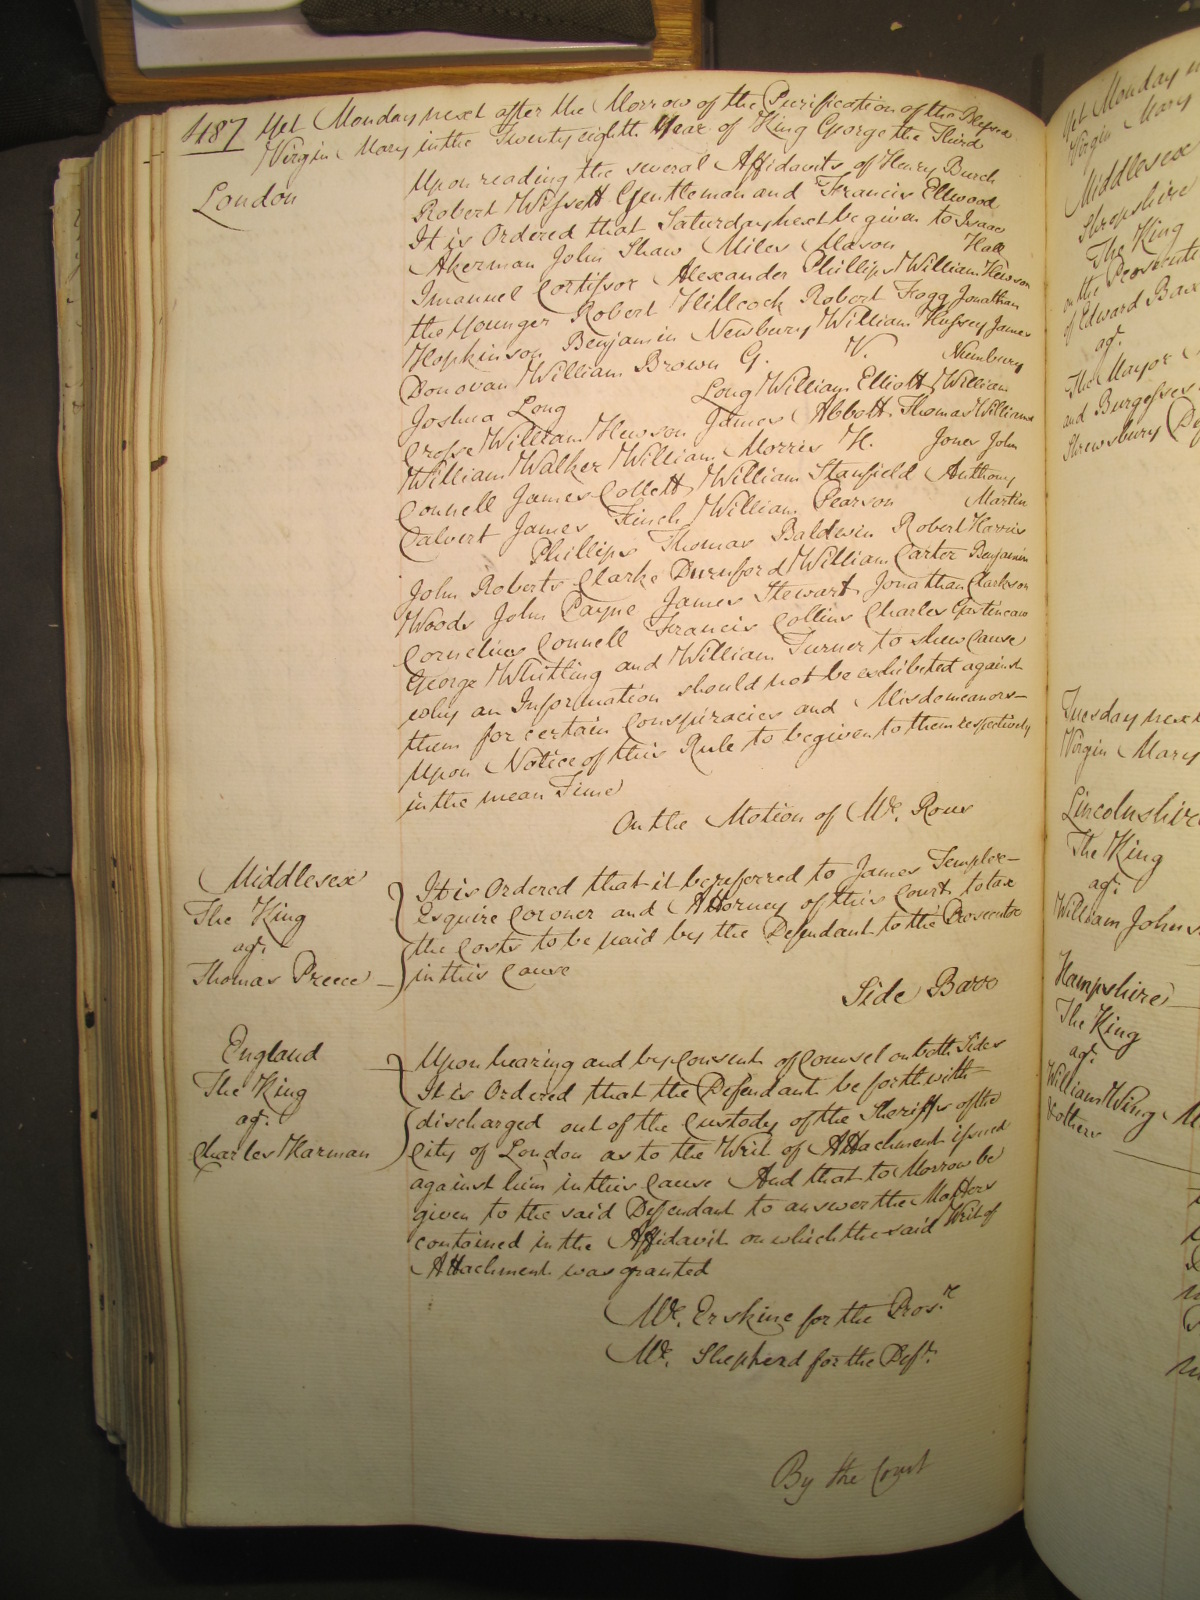 487 Yet Monday next after the Morrow of the Purification of the Blessed
Virgin Mary in the Twenty eighth Year of King George the Third
London
Upon reading the several Affidavits of Henry Burch
Robert Wissett Gentleman and Francis Ellwood
It is Ordered that Saturday next be given to Isaac
Akerman John Shaw Miles Mason Hall
Imanuel Cortissor Alexander Phillips William Hewson
the Younger Robert Hillcock Robert Fogg Jonathan
Hopkinson Benjamin Newbury William Hussey James
Donovan William Brown G. V. Numbury
Joshua Long Long William Elliott William
Crosse William Hewson James Abbott Thomas Williams
William Walker William Morris H. Jones John
Connell James Collett William Stanfield Anthony
Calvert James Finch William Pearson Martin
Phillips Thomas Baldwin Robert Harris
John Roberts Clarke Durnford William Carter Benjamin
Woods John Payne James Stewart Jonathan Clarkson
Cornelius Connell Francis Collins Charles Gastineau
George Whitling and William Turner to shew Cause
why an Information should not be exhibited against
them for certain Conspiracies and Misdemeanors
Upon Notice of this Rule to be given to them respectively
in the mean Time
On the Motion of Mr. Rous
Middlesex
The King
agt.
Thomas Preece
It is Ordered that it be referred to James Templer
Esquire Coroner and Attorney of this Court to tax
the Costs to be paid by the Defendant to the Prosecutor
in this Cause
Side Barr
England
The King
agt.
Charles Harman
Upon hearing and by Consent of Counsel on both Sides
It is Ordered that the Defendant be forthwith
discharged out of the Custody of the Sheriffs of the
City of London as to the Writ of Attachment issued
against him in this Cause And that to Morrow be
given to the said Defendant to answer the Matters
contained in the Affidavit on which the said Writ of
Attachment was granted
Mr. Erskine for the Prosr.
Mr. Shepherd for the Deft.
By the Court
Yet Monday
Virgin Mary
Middlesex
Shropshire
The King
on the Prosecution
of Edward
agt.
The Mayor
and Burgesses
Shrewsbury
Tuesday next
Virgin Mary
Lincolnshire
The King
agt.
William Johns
Hampshire
The King
agt.
William Wing
& others